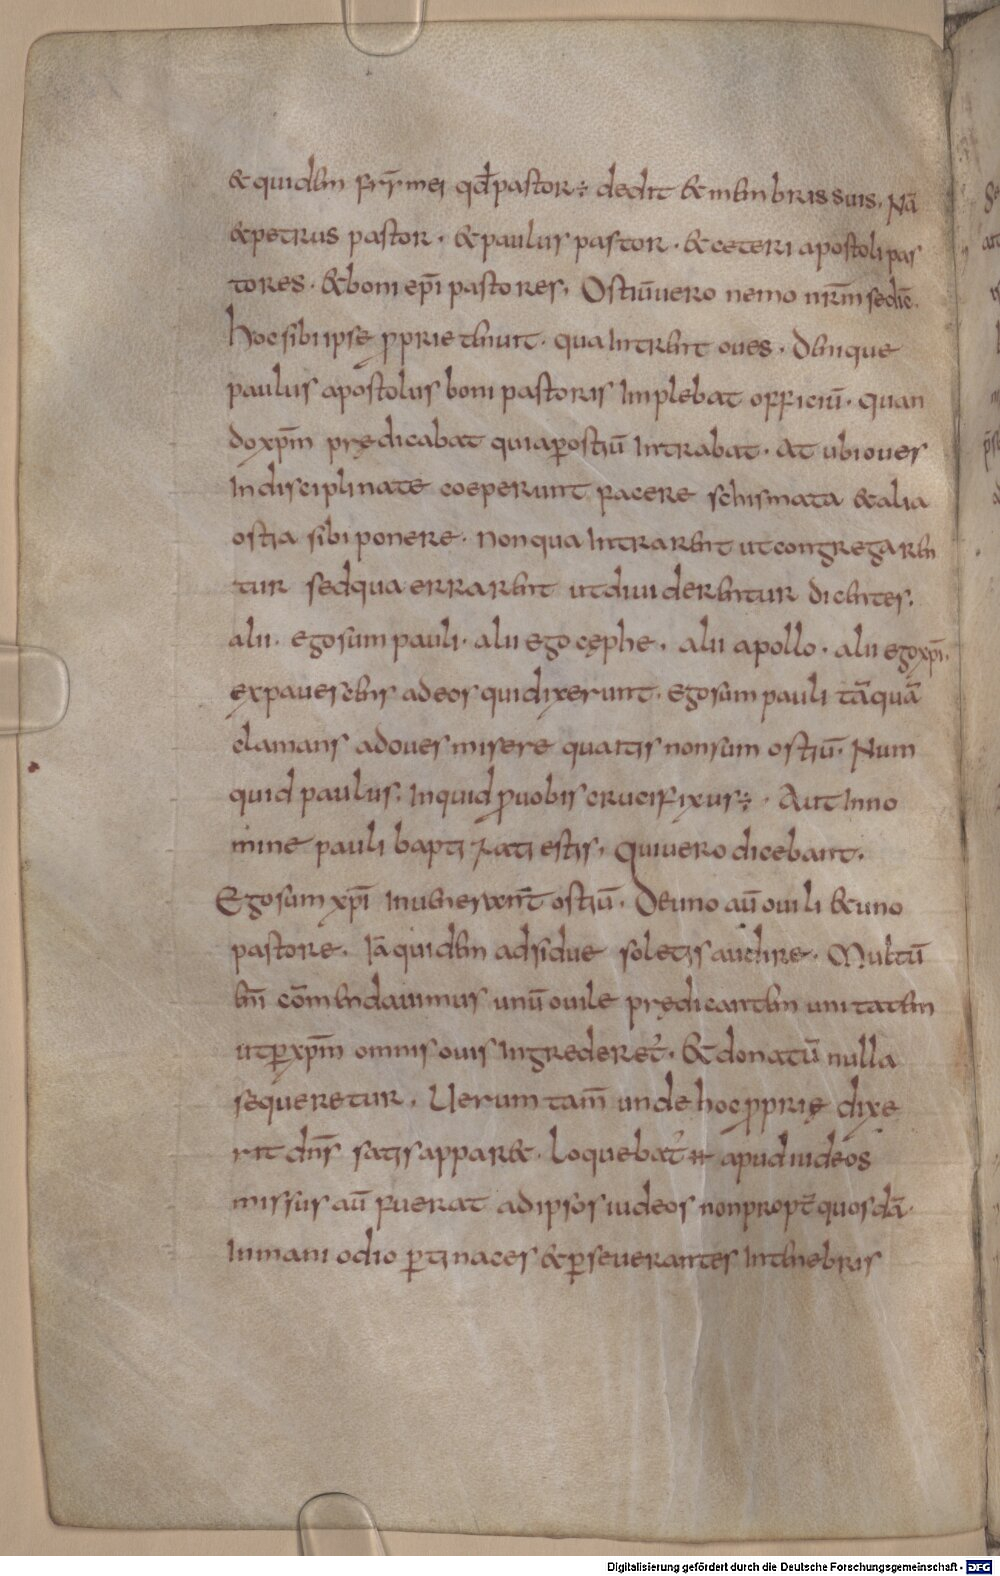 & quidem frr̄ mei qđ pastor÷ dedit & membris suis. Nā
& petrus pastor. & paulus pastor. & ceteri apostoli pas
tores. & boni ep̄i pastores. Ostiū vero nemo nr̄m se dic̄
hoc sibi ipse ꝓprie tenuit. qua intrent oues. Denique
paulus apostolus boni pastoris implebat officiū. quan
do xp̄m prędicabat quia ꝑ ostiū intrabat. At ubi oues
indisciplinate coeperunt facere schismata & alia
ostia sibi ponere. non qua intrarent ut congregaren
tur sed qua errarent ut diuiderentur dicentes.
alii. ego sum pauli. alii ego cęphe. alii apollo. alii ego xp̄i.
expauescens ad eos qui dixerunt. ego sum pauli tāquā
clamans ad oues misere quatis non sum ostiū. Num
quid paulus. inquid ꝓ uobis crucifixus÷. Aut in no
mine pauli baptizati estis. Qui uero dicebant.
Ego sum xp̄i inuenerunt ostiū. De uno aū ouili & uno
pastore. Iā quidem adsidue soletis audire. Multū
em̄ cōmendauimus unū ouile prędicantem unitatem
ut ꝑ xp̄m omnis ouis ingrederet᷑. & donatū nulla
sequeretur. Uerum tam̄ unde hoc ꝓprię dixe
rit dn̄s satis appar&. Loquebat᷑ ⁊ apud iudeos
missus aū fuerat ad ipsos iudeos non propt̄ quosdā.
inmani odio ꝑtinaces & ꝑseuerantes in tenebris
Digitalisierung gefördert durch die Deutsche Forschungsgemeinschaft - DFG